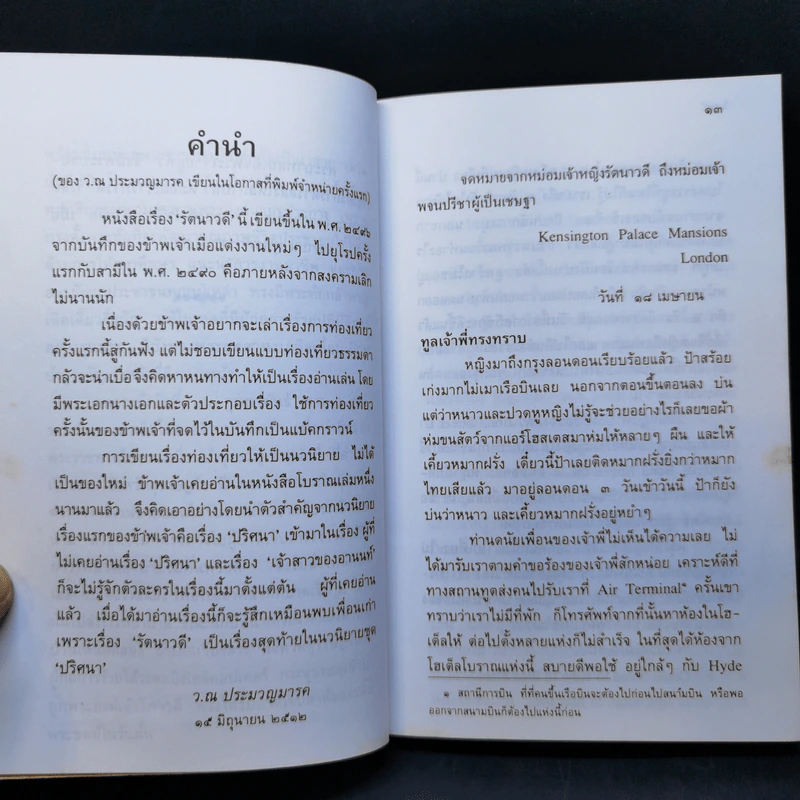 คำนำ
(ของ ว.ณ ประมวญมารค เขียนในโอกาสที่พิมพ์จำหน่ายครั้งแรก)
หนังสือเรื่อง ‘รัตนาวดี’ นี้ เขียนขึ้นใน พ.ศ. ๒๔๙๖
จากบันทึกของข้าพเจ้าเมื่อแต่งงานใหม่ๆ ไปยุโรปครั้ง
แรกกับสามีใน พ.ศ. ๒๔๙๐ คือภายหลังจากสงครามเลิก
ไม่นานนัก
เนื่องด้วยข้าพเจ้าอยากจะเล่าเรื่องการท่องเที่ยว
ครั้งแรกนี้สู่กันฟัง แต่ไม่ชอบเขียนแบบท่องเที่ยวธรรมดา
กลัวจะน่าเบื่อ จึงคิดหาหนทางทำให้เป็นเรื่องอ่านเล่น โดย
มีพระเอกนางเอกและตัวประกอบเรื่อง ใช้การท่องเที่ยว
ครั้งนั้นของข้าพเจ้าที่จดไว้ในบันทึกเป็นแบ้คกราวน์
การเขียนเรื่องท่องเที่ยวให้เป็นนวนิยาย ไม่ได้
เป็นของใหม่ ข้าพเจ้าเคยอ่านในหนังสือโบราณเล่มหนึ่ง
นานมาแล้ว จึงคิดเอาอย่างโดยนำตัวสำคัญจากนวนิยาย
เรื่องแรกของข้าพเจ้าคือเรื่อง ‘ปริศนา’ เข้ามาในเรื่อง ผู้ที่
ไม่เคยอ่านเรื่อง ‘ปริศนา’ และเรื่อง ‘เจ้าสาวของอานนท์’
ก็จะไม่รู้จักตัวละครในเรื่องนี้มาตั้งแต่ต้น ผู้ที่เคยอ่าน
แล้ว เมื่อได้มาอ่านเรื่องนี้ก็จะรู้สึกเหมือนพบเพื่อนเก่า
เพราะเรื่อง ‘รัตนาวดี’ เป็นเรื่องสุดท้ายในนวนิยายชุด
‘ปริศนา’
ว.ณ ประมวญมารค
๑๕ มิถุนายน ๒๕๑๒
๑๓
จดหมายจากหม่อมเจ้าหญิงรัตนาวดี ถึงหม่อมเจ้า
พจนปรีชาผู้เป็นเชษฐา
Kensington Palace Mansions
London
วันที่ ๑๘ เมษายน
ทูลเจ้าพี่ทรงทราบ
หญิงมาถึงกรุงลอนดอนเรียบร้อยแล้ว ป้าสร้อย
เก่งมากไม่เมาเรือบินเลย นอกจากตอนขึ้นตอนลง บ่น
แต่ว่าหนาวและปวดหูหญิงไม่รู้จะช่วยอย่างไรก็เลยขอผ้า
ห่มขนสัตว์จากแอร์โฮสเตสมาห่มให้หลายๆ ผืน และให้
เคี้ยวหมากฝรั่ง เดี๋ยวนี้ป้าเลยติดหมากฝรั่งยิ่งกว่าหมาก
ไทยเสียแล้ว มาอยู่ลอนดอน ๓ วันเช้าวันนี้ ป้าก็ยัง
บ่นว่าหนาว และเคี้ยวหมากฝรั่งอยู่หยำๆ
ท่านดนัยเพื่อนของเจ้าพี่ไม่เห็นได้ความเลย ไม่
ได้มารับเราตามคำขอร้องของเจ้าพี่สักหน่อย เคราะห์ดีที่
ทางสถานทูตส่งคนไปรับเราที่ Air Terminal๑ ครั้นเขา
ทราบว่าเราไม่มีที่พัก ก็โทรศัพท์จากที่นั้นหาห้องในโฮ-
เต็ลให้ ต่อไปตั้งหลายแห่งก็ไม่สำเร็จ ในที่สุดได้ห้องจาก
โฮเต็ลโบราณแห่งนี้ สบายดีพอใช้ อยู่ใกล้ๆ กับ Hyde
๑ สถานีการบิน ที่ที่คนขึ้นเรือบินจะต้องไปก่อนไปสนามบิน หรือพอ
ออกจากสนามบินก็ต้องไปแห่งนี้ก่อน